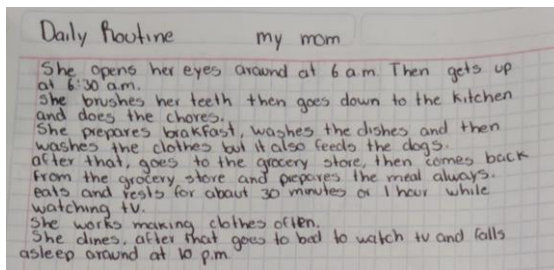 Daily Routine my mom
She opens her eyes around at 6 a.m. Then gets up
at 6:30 a.m.
She brushes her teeth then goes down to the kitchen
and does the chores.
She prepares brakfast, washes the dishes and then
washes the clothes but it also feeds the dogs.
after that, goes to the grocery store, then comes back
from the grocery store and prepares the meal always.
eats and rests for about 30 minutes or 1 hour while
watching tv.
She works making clothes often.
She dines, after that goes to bed to watch tv and falls
asleep around at 10 p.m